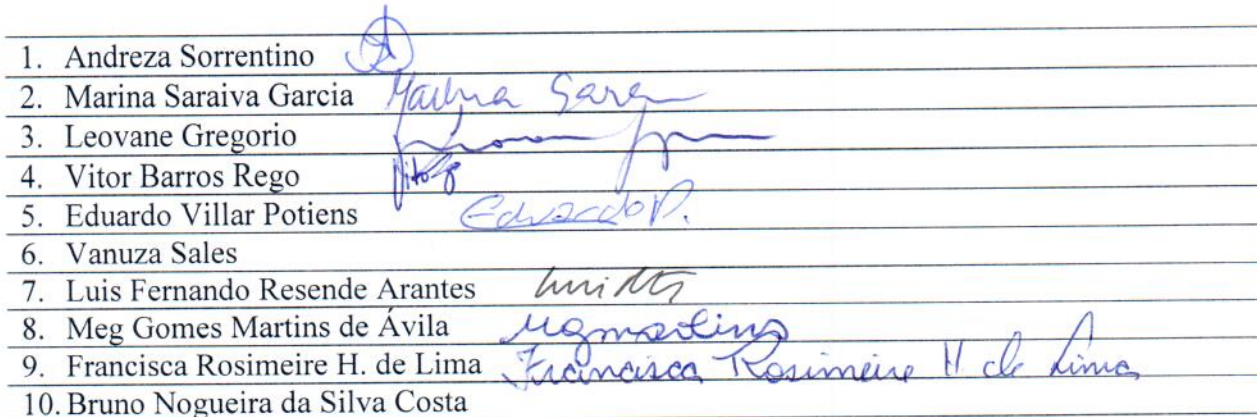 1. Andreza Sorrentino
2. Marina Saraiva Garcia Marina Sara
3. Leovane Gregorio
4. Vitor Barros Rego Vitor
5. Eduardo Villar Potiens Eduardo P.
6. Vanuza Sales
7. Luis Fernando Resende Arantes
8. Meg Gomes Martins de Ávila mgmartins
9. Francisca Rosimeire H. de Lima Francisca Rosimeire H de Lima
10. Bruno Nogueira da Silva Costa